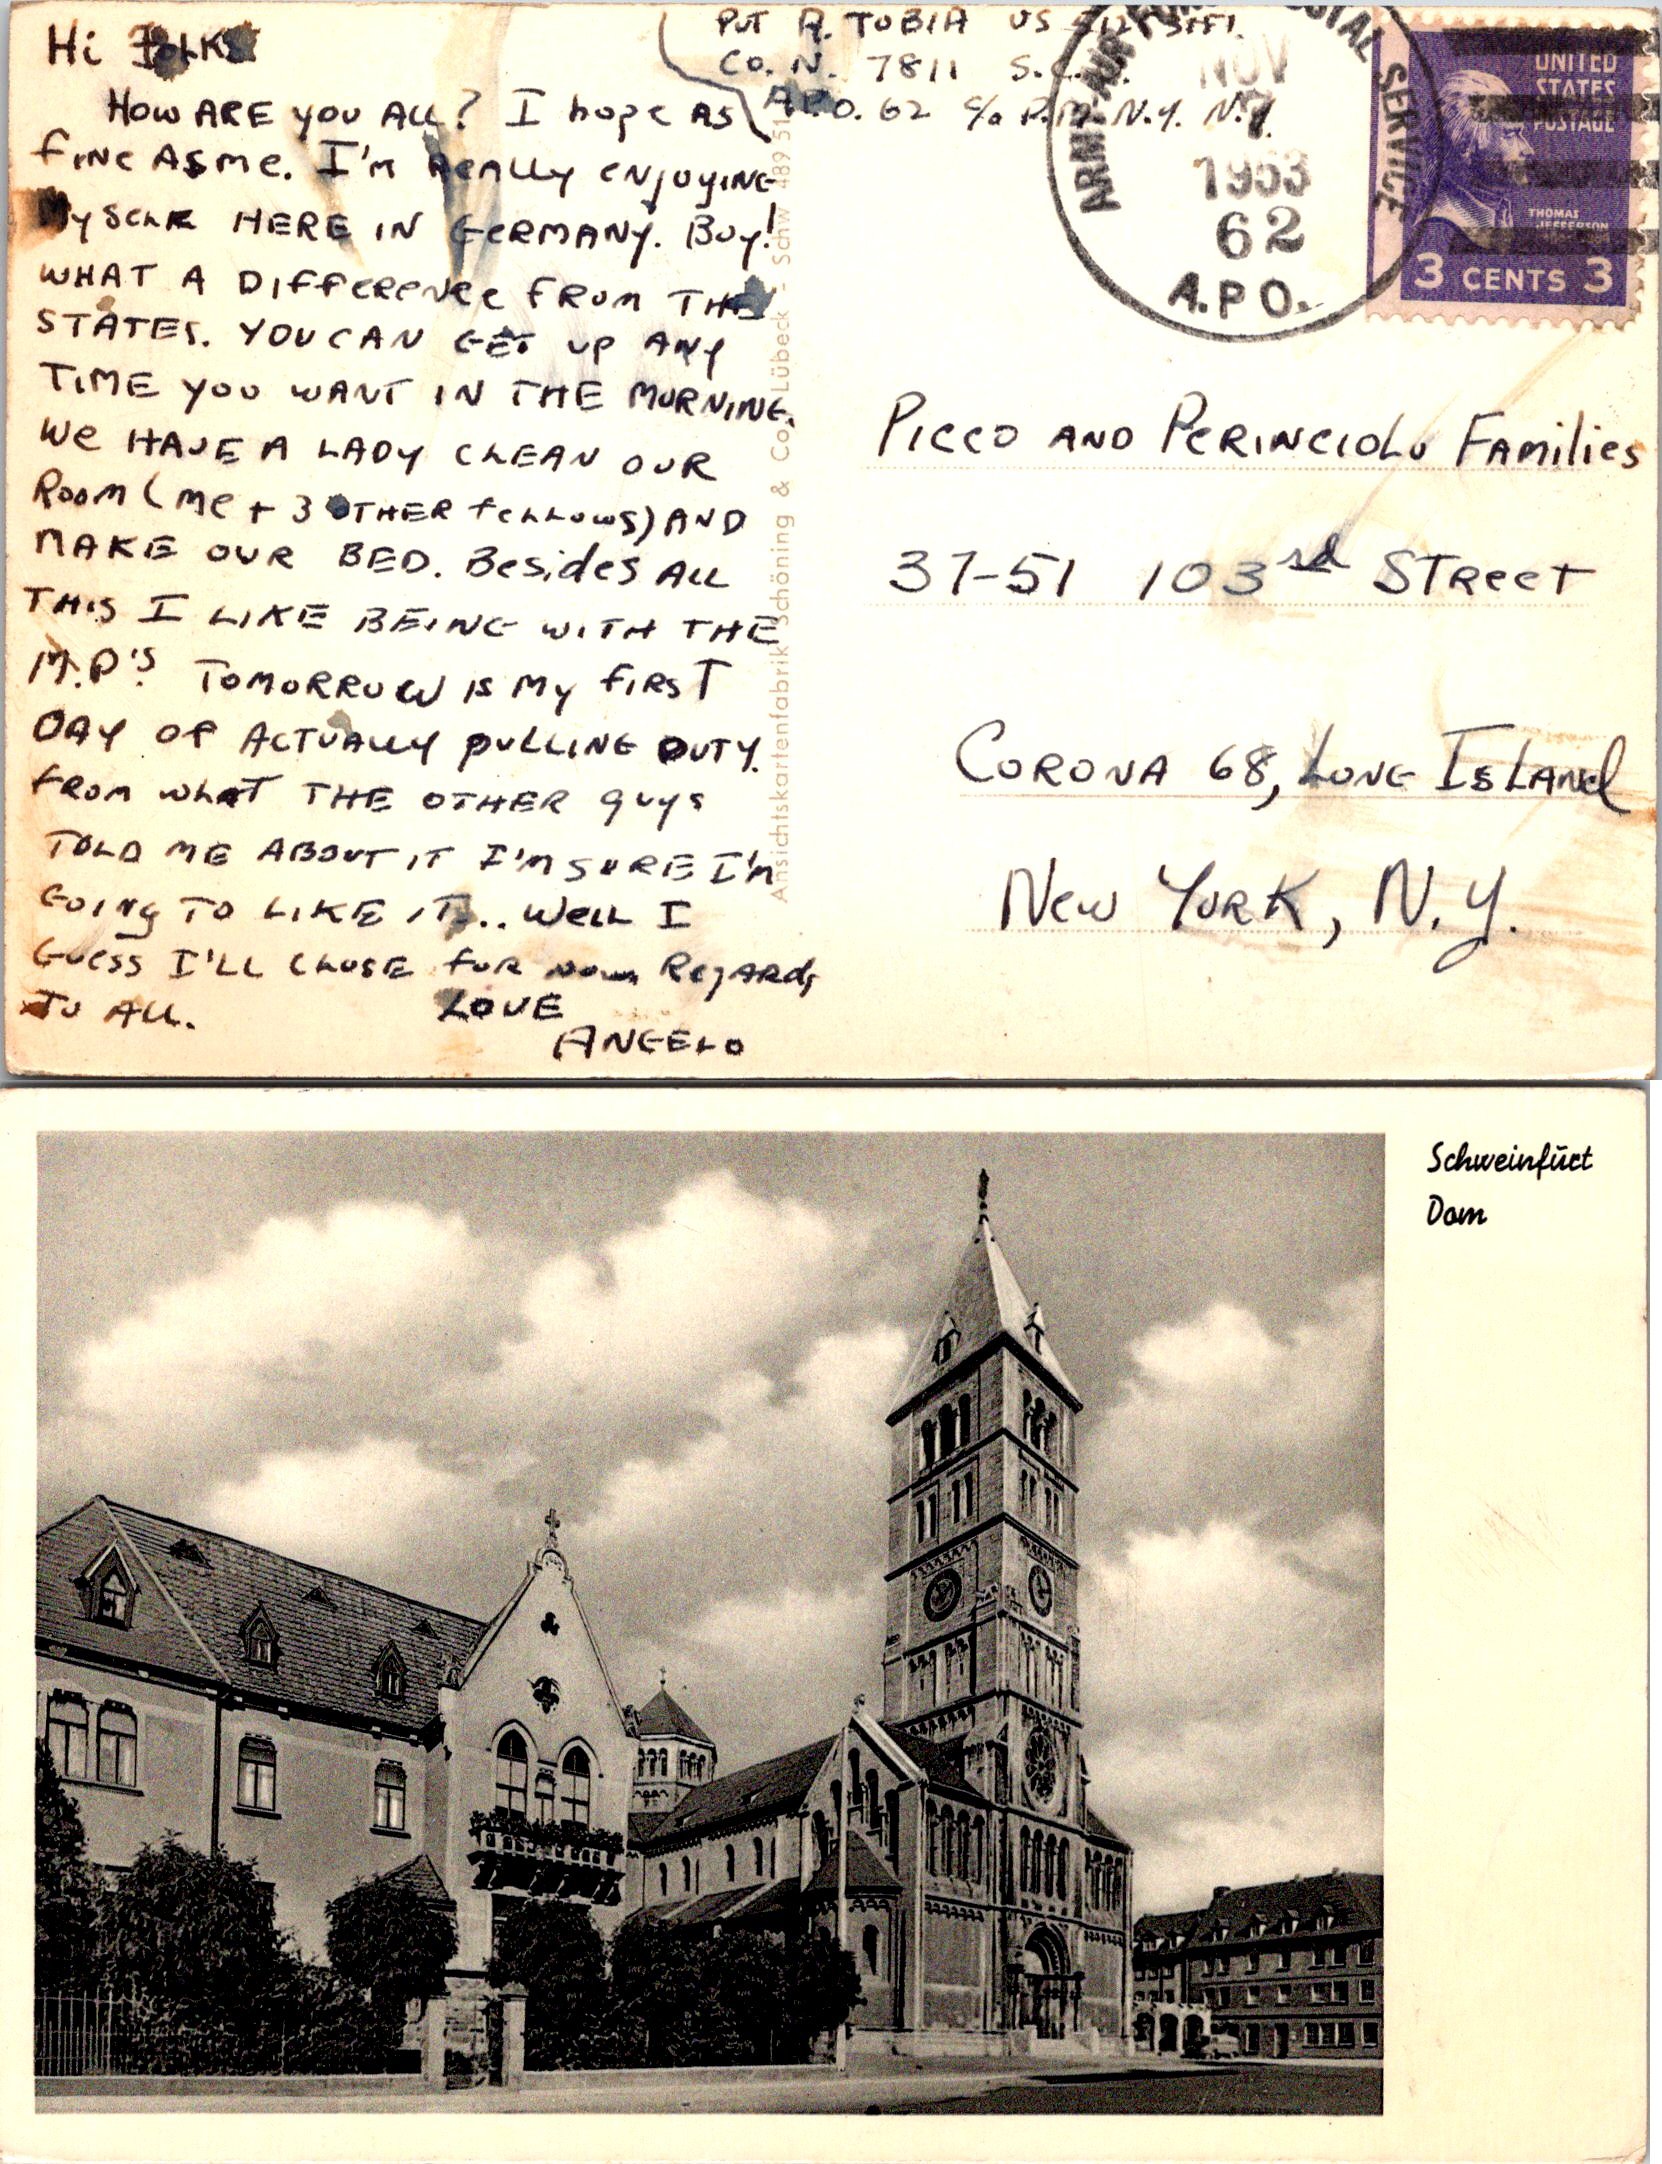 Hi FOLKS
HOW ARE YOU ALL? I hope AS
fine AS me. I'm REALLY ENJOYING
MYSELF HERE IN GERMANY. BOY!
WHAT A DIFFERENCE FROM THE
STATES. YOU CAN GET UP ANY
TIME YOU WANT IN THE MORNING.
We HAVE A LADY CLEAN OUR
ROOM (me + 3 OTHER fellows) AND
MAKE OUR BED. Besides ALL
THIS I LIKE BEING WITH THE
M.P'S. TOMORROW IS MY FIRST
DAY OF ACTUALLY PULLING DUTY.
FROM WHAT THE OTHER guys
TOLD ME ABOUT IT I'M SURE I'M
GOING TO LIKE IT... Well I
GUESS I'LL CLOSE FOR NOW. REGARDS
TO ALL.
LOVE
ANGELO
PVT A. TOBIA US
CO. N. 7811
A.P.O. 62 c/o P.M. N.Y. N.Y.
Ansichtskartenfabrik Schöning & Co Lübeck - Schw 489 51
ARMY-AIR POSTAL SERVICE
NOV
7
1953
62
A.P.O.
UNITED
STATES
POSTAGE
THOMAS
JEFFERSON
3 CENTS 3
PICCO AND PERINCIOLO FAMILIES
37-51 103rd STREET
CORONA 68, LONG ISLAND
NEW YORK, N.Y.
Schweinfurt
Dom